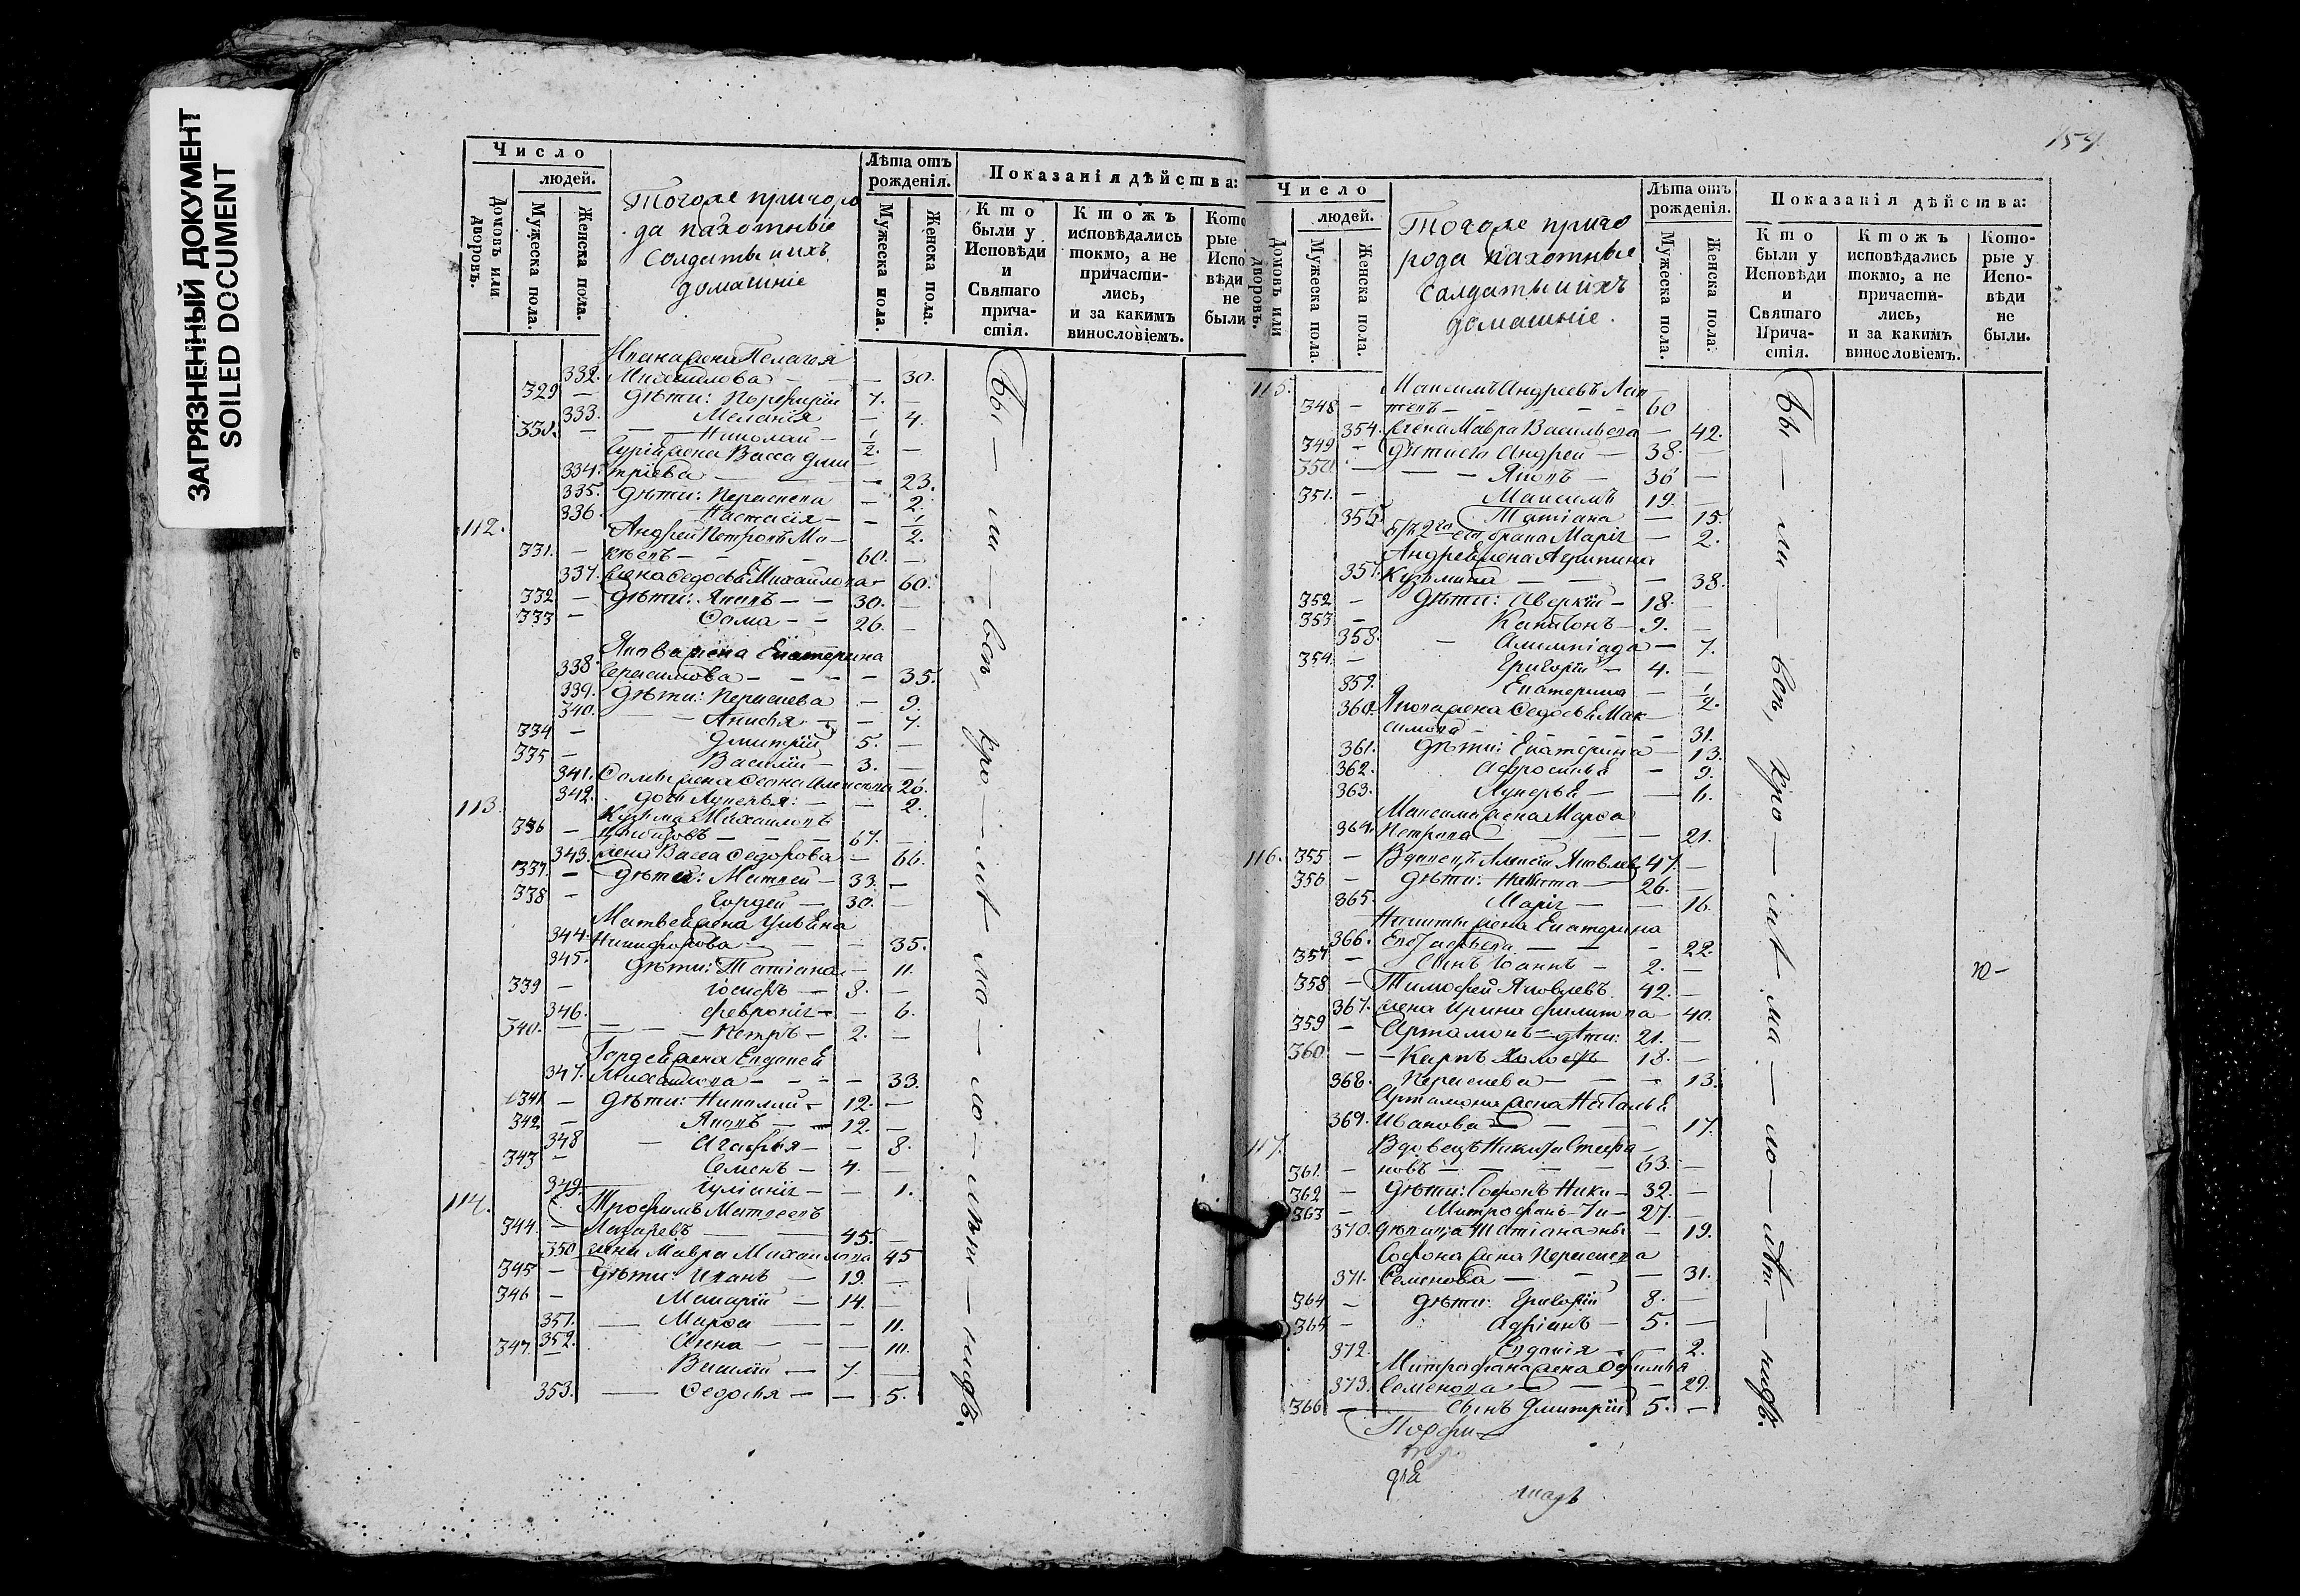 ЗАГРЯЗНЕННЫЙ ДОКУМЕНТ
SOILED DOCUMENT
Число
людей.
Домовъ или дворовъ.
Мужеска пола.
Женска пола.
Тогоже пригоро
да пахотные
солдаты и ихъ
домашніе
Лѣта отъ рожденія.
Мужеска пола.
Женска пола.
Показанія дѣйства:
Кто были у Исповѣди и Святаго причастія.
Ктожъ исповѣдались токмо, а не причастились, и за какимъ винословіемъ.
Кото рые Испо вѣди не были
Ивана жена Пелагея
332. Михаилова — 30.
329 — дѣти: Порфирій 7. —
333. Меланія — 4.
330. — Николай — 1/2. —
жена Васса Дми
334. тріева — 23.
335. дѣти: Парасцева — 2.
336. Настасія — 1/2.
112. Андрей Петровъ Ма
331. — кѣевъ — 60. —
337. жена Федосья Михайлова — 60.
332 — дѣти: Яковъ — 30. —
333 — Фома — 26. —
Якова жена Екатерина
338. Герасимова — 35.
339. дѣти: Парасцева — 9.
340. Анисья — 7.
334 — Дмитрій 5. —
335 — Василій — 3. —
341. Фомы жена Фекла Алексѣева 26.
342. дочь Лукерья: — 2.
113. Кузьма Михаиловъ
336 — 67. —
343. жена Васса Федорова — 66.
337. — дѣти: Матвей — 33. —
338 — Гордей — 30. —
Матвея жена Ульяна
344. Никифорова — 35.
345. дѣти: Татіана — 11.
339 — Іосифъ — 8. —
346. Февронія — 6.
340. — Петръ — 2. —
Гордея жена Евдокея
347. Михаилова — 33.
341. — дѣти: Николай — 12. —
342 — Яковъ — 12. —
348 — Агафья — 8.
343 — Семенъ — 4. —
349. Іуліанія — 1.
114. Трофимъ Матвеевъ
344. — Лазаревъ — 45. —
350. жена Мавра Михаилова 45
345 — дѣти: Иванъ — 19. —
346 — Макарій — 14. —
351. Марфа — 11.
352. Анна — 10.
347. — Василій — 7. —
353. — Федосья — 5.
Бы — ли — всѣ, кро — мѣ ма — ло — лѣт — нихъ.
154
Число
людей.
Домовъ или дворовъ.
Мужеска пола.
Женска пола.
Тогоже приго
рода пахотные
солдаты и ихъ
домашніе.
Лѣта отъ рожденія.
Мужеска пола.
Женска пола.
Показанія дѣйства:
Кто были у Исповѣди и Святаго Причастія.
Ктожъ исповѣдались токмо, а не причастились, и за какимъ винословіемъ.
Которые у Исповѣди не были.
115. Максимъ Андреевъ Лап
348 — тевъ — 60
354. жена Мавра Васильева — 42.
349 — дѣти его Андрей — 38. —
350. — Яковъ — 36 —
351. — Максимъ 19. —
355. Татіана — 15.
брака Марія — 2.
Андрея жена Акулина
357. Кузьмина — 38.
352 — дѣти: Аверкій — 18. —
353 — Капитонъ — 9. —
358. — Алимпіада — 7.
354. — Григорій — 4. —
359. Екатерина — 1/2.
360. Якова жена Федосья Мак
симова — 31.
361. дѣти: Екатерина — 13.
362. Афросинья — 9.
363. Лукерья — 6.
Максима жена Марфа
364. Петрова — 21.
116. 355 — Вдовецъ Алексѣй Яковлевъ 47. —
356 — дѣти: Никита — 26. —
365. Марія — 16.
Никиты жена Екатерина
366. — 22.
357 — сынъ Іоаннъ — 2. —
358 — Тимофей Яковлевъ 42. —
367. жена Ирина Филипова — 40.
359 — Артамонъ — дѣти: 21. —
360 — Карпъ 18. —
368. Парасцева — 13.
Артамона жена Наталья
369. Иванова — 17.
117. Вдовецъ Никита Стефа
361. — новъ — 63. —
362 — дѣти: Софонъ Ники — 32. —
363 — Митрофанъ — 27. —
370. дѣвица Татіана — 19.
Софона жена Парасцева
371. Семенова — 31.
364 — дѣти: Григорій 8. —
365 — Адріанъ — 5. —
372. Евдокія — 2.
Митрофана жена Офимья
373. Семенова — 29.
366 — сынъ Дмитрій 5. —
Бы — ли — всѣ, кро — мѣ ма — ло — лѣт — нихъ.